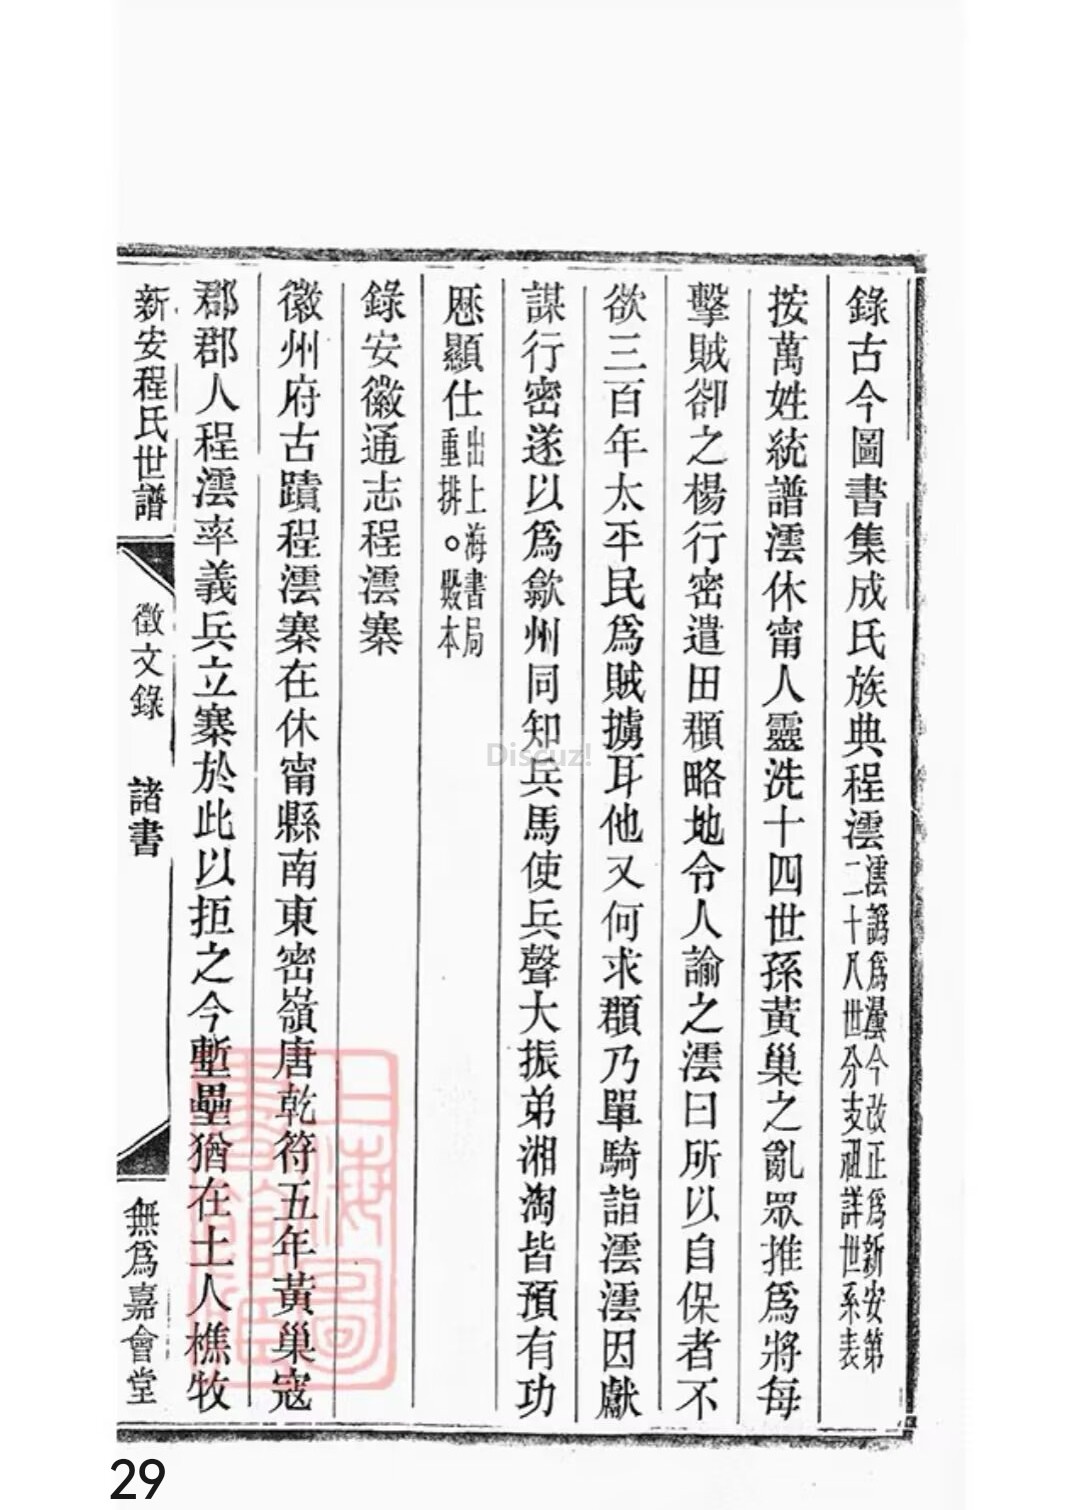 錄古今圖書集成氏族典程澐澐譌爲澐今改正爲新安第二十八世分支祖詳世系表
按萬姓統譜澐休甯人靈洗十四世孫黃巢之亂眾推爲將每
擊賊卻之楊行密遣田頵略地令人諭之澐曰所以自保者不
欲三百年太平民爲賊擄耳他又何求頵乃單騎詣澐澐因獻
謀行密遂以爲歙州同知兵馬使兵聲大振弟湘淘皆預有功
歷顯仕出上海書局重排。殿本
錄安徽通志程澐寨
徽州府古蹟程澐寨在休甯縣南東密嶺唐乾符五年黃巢寇
郡郡人程澐率義兵立寨於此以拒之今塹壘猶在土人樵牧
新安程氏世譜
徵文錄
諸書
無爲嘉會堂
上海圖書館藏
Discuz!
29